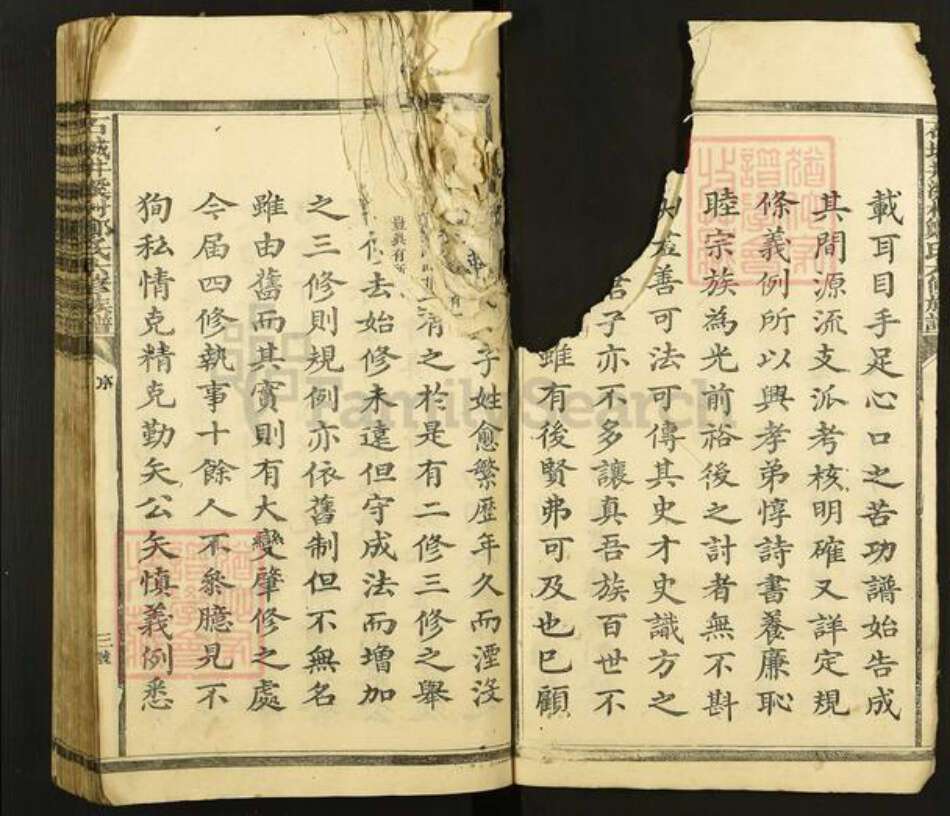 載耳目手足心口之苦功譜始告成
其間源流支派考核明確又詳定規
條義例所以興孝弟惇詩書養廉恥
睦宗族為光前裕後之討者無不斟
善可法可傳其史才史識方之
君子亦不多讓真吾族百世不
雖有後賢弗可及也已顧
子姓愈繁歷年久而湮沒
有之於是有二修三修之舉
去始修未遠但守成法而增加
之三修則規例亦依舊制但不無名
雖由舊而其實則有大變肇修之處
今屆四修執事十餘人不參臆見不
狥私情克精克勤矢公矢慎義例悉
序
三
FamilySearch